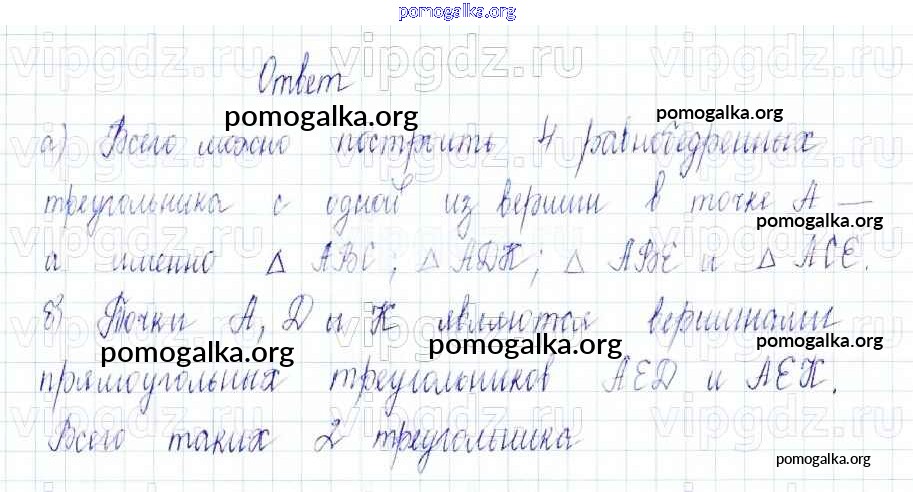 pomogalka.org
vipgdz.ru vipgdz.ru vipgdz.ru
Ответ
pomogalka.org pomogalka.org
а) Всего можно построить 4 равнобедренных
треугольника с одной из вершин в точке А —
pomogalka.org
а именно △ АВС; △ АДК; △ АВЕ и △ АСЕ.
б) Точки А, D и К являются вершинами
pomogalka.org pomogalka.org pomogalka.org
прямоугольных треугольников АЕD и АЕК.
Всего таких 2 треугольника
pomogalka.org